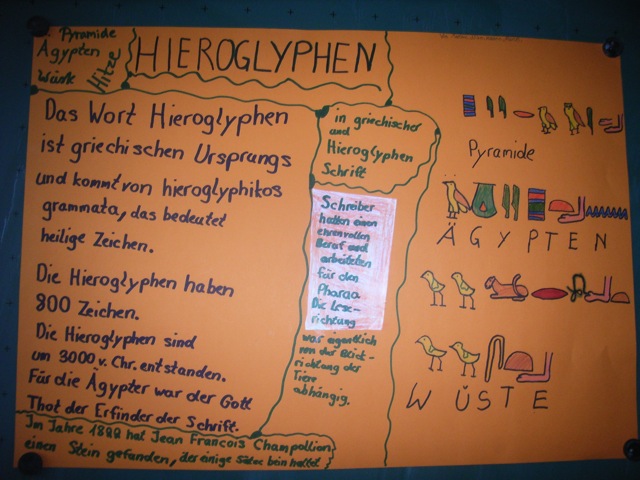 Pyramide
Ägypten
Wüste
Hitze
HIEROGLYPHEN
Das Wort Hieroglyphen
ist griechischen Ursprungs
und kommt von hieroglyphikos
grammata, das bedeutet
heilige Zeichen.
Die Hieroglyphen haben
800 Zeichen.
Die Hieroglyphen sind
um 3000 v. Chr. entstanden.
Für die Ägypter war der Gott
Thot der Erfinder der Schrift.
Im Jahre 1822 hat Jean Francois Champollion
einen Stein gefunden, der einige Sätze
in griechischer
und
Hieroglyphen
Schrift
Schreiber
hatten einen
ehrenvollen
Beruf und
arbeiteten
für den
Pharao
Die Lese-
richtung
war eigentlich
von der Blick-
richtung der
Tiere
abhängig.
Pyramide
ÄGYPTEN
WÜSTE